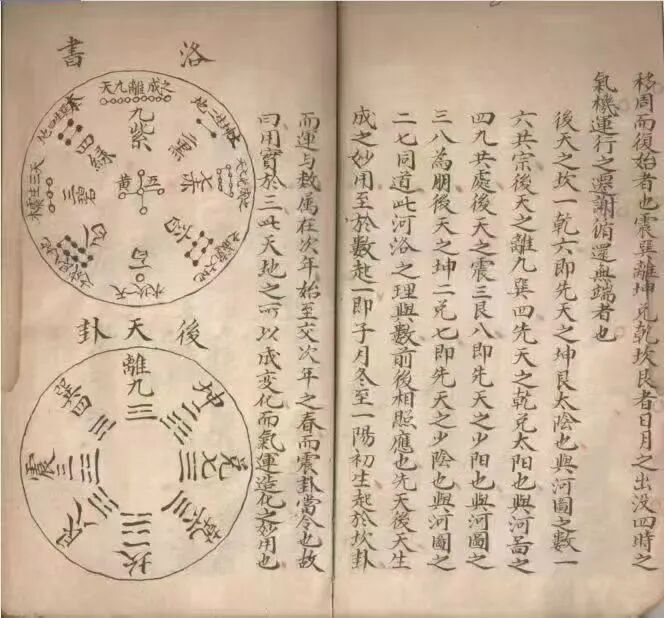 移周而復始者也震巽離坤兌乾坎艮者日月之出没四時之
氣機運行之還謝循還無端者也
後天之坎一乾六即先天之坤艮太陰也與河圖之數一
六共宗後天之離九巽四先天之乾兌太陽也與河啚之
四九共處後天之震三艮八即先天之少陽也與河圖之
三八為朋後天之坤二兌七即先天之少陰也與河圖之
二七同道此河洛之理與數前後相照應也先天後天生
成之妙用至於數起一即子月冬至一陽初生起於坎卦
而運与数属在次年始至交次年之春而震卦當令也故
曰用寳於三此天地之所以成变化而氣運造化之妙用也
洛書
天九離成之
九紫
四緑
黑
五
黃
三
一白
八
後天卦
離九
坤二
兌七
乾六
坎一
艮八
震三
巽四